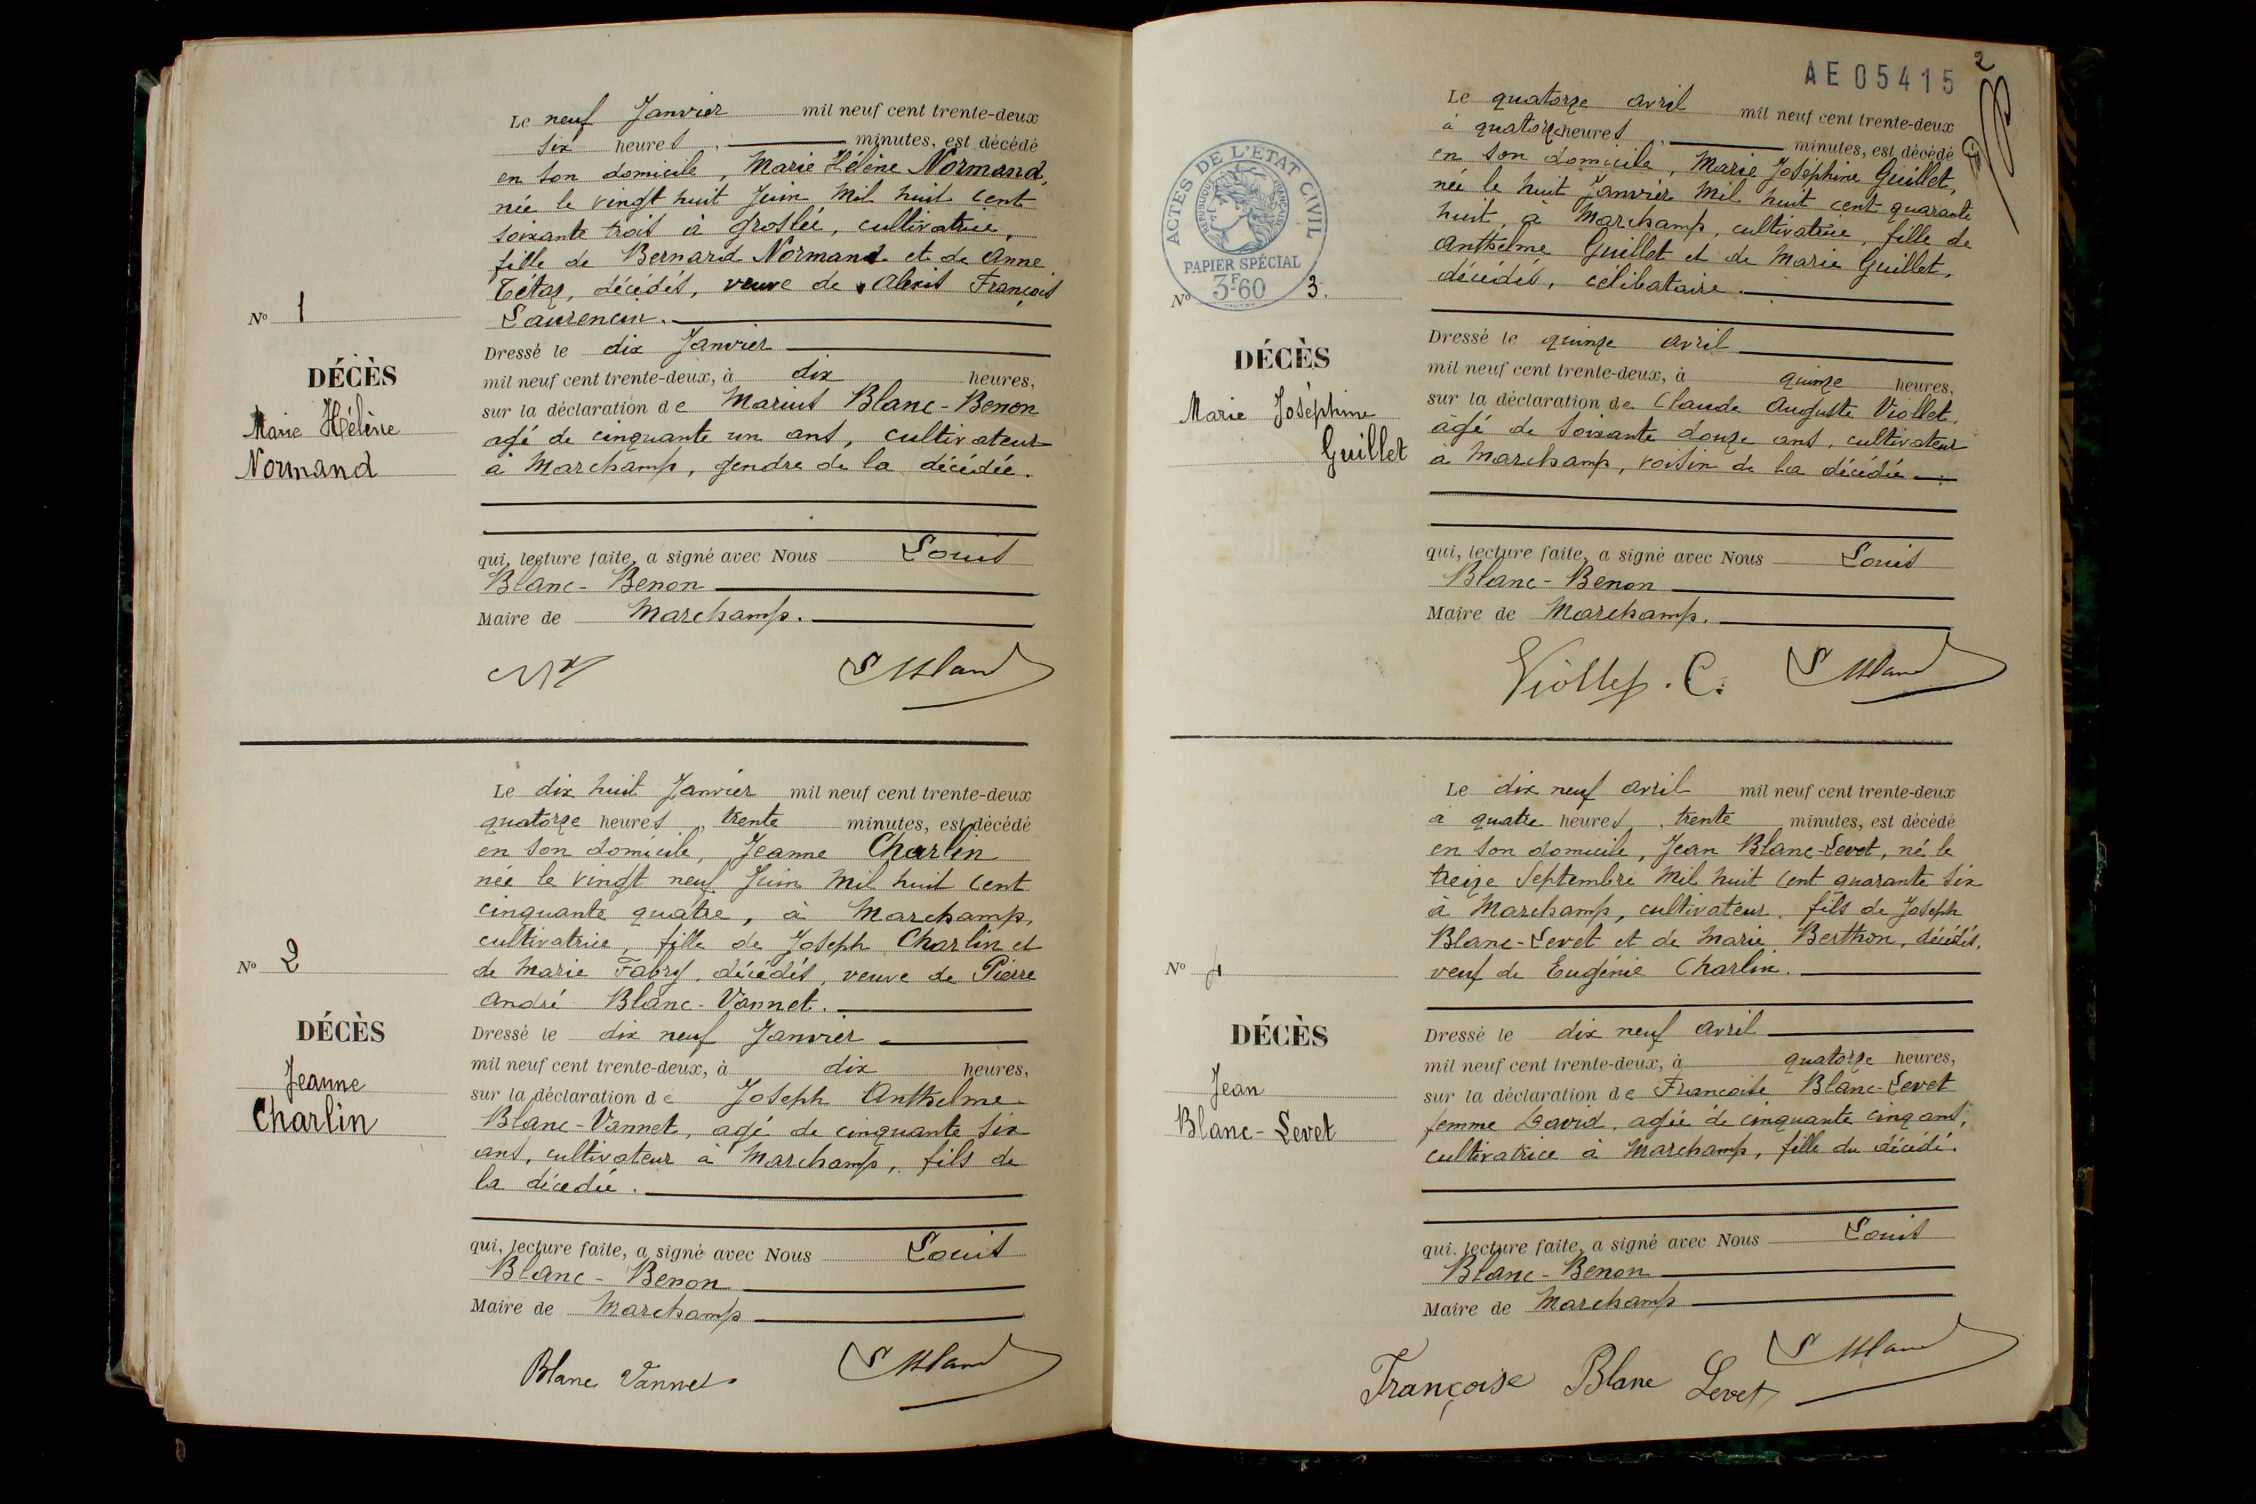 Le neuf Janvier mil neuf cent trente-deux
six heures, minutes, est décédé
en son domicile, Marie Hélène Normand,
née le vingt huit Juin Mil huit cent
soixante trois à Groslée, cultivatrice,
fille de Bernard Normand et de Anne
Tétaz, décédés, veuve de Alexis François
Laurencin.
Nº 1
DÉCÈS
Marie Hélène
Normand
Dressé le dix Janvier
mil neuf cent trente-deux, à dix heures,
sur la déclaration de Marius Blanc-Benon
agé de cinquante un ans, cultivateur
à Marchamp, gendre de la décédée.
qui, lecture faite, a signé avec Nous Louis
Blanc-Benon
Maire de Marchamp.
Le dix huit Janvier mil neuf cent trente-deux
quatorze heures, trente minutes, est décédé
en son domicile, Jeanne Charlin
née le vingt neuf Juin Mil huit cent
cinquante quatre, à Marchamp,
cultivatrice, fille de Joseph Charlin et
de Marie Fabry, décédés, veuve de Pierre
André Blanc-Vannet.
Nº 2
DÉCÈS
Jeanne
Charlin
Dressé le dix neuf Janvier
mil neuf cent trente-deux, à dix heures,
sur la déclaration de Joseph Anthelme
Blanc-Vannet, agé de cinquante six
ans, cultivateur à Marchamp, fils de
la décédée.
qui, lecture faite, a signé avec Nous Louis
Blanc-Benon
Maire de Marchamp
Blanc Vannet
AE05415
2
Le quatorze avril mil neuf cent trente-deux
à quatorze heures, minutes, est décédé
en son domicile, Marie Joséphine Guillet,
née le huit Janvier Mil huit cent quarante
huit, à Marchamp, cultivatrice, fille de
Anthelme Guillet et de Marie Guillet,
décédés, célibataire.
ACTES DE L'ETAT CIVIL
REPUBLIQUE FRANÇAISE
PAPIER SPÉCIAL
3F60
Nº 3.
DÉCÈS
Marie Joséphine
Guillet
Dressé le quinze avril
mil neuf cent trente-deux, à quinze heures,
sur la déclaration de Claude Auguste Viollet,
âgé de soixante douze ans, cultivateur
à Marchamp, voisin de la décédée.
qui, lecture faite, a signé avec Nous Louis
Blanc-Benon
Maire de Marchamp.
Viollet. C.
Le dix neuf avril mil neuf cent trente-deux
a quatre heures, trente minutes, est décédé
en son domicile, Jean Blanc-Levet, né le
treize Septembre Mil huit cent quarante six
à Marchamp, cultivateur, fils de Joseph
Blanc-Levet et de Marie Berthon, décédés,
veuf de Eugénie Charlin.
Nº 4
DÉCÈS
Jean
Blanc-Levet
Dressé le dix neuf avril
mil neuf cent trente-deux, à quatorze heures,
sur la déclaration de Francoise Blanc-Levet
femme David, agée de cinquante cinq ans,
cultivatrice à Marchamp, fille du décédé.
qui, lecture faite, a signé avec Nous Louis
Blanc-Benon
Maire de Marchamp
Françoise Blanc Levet